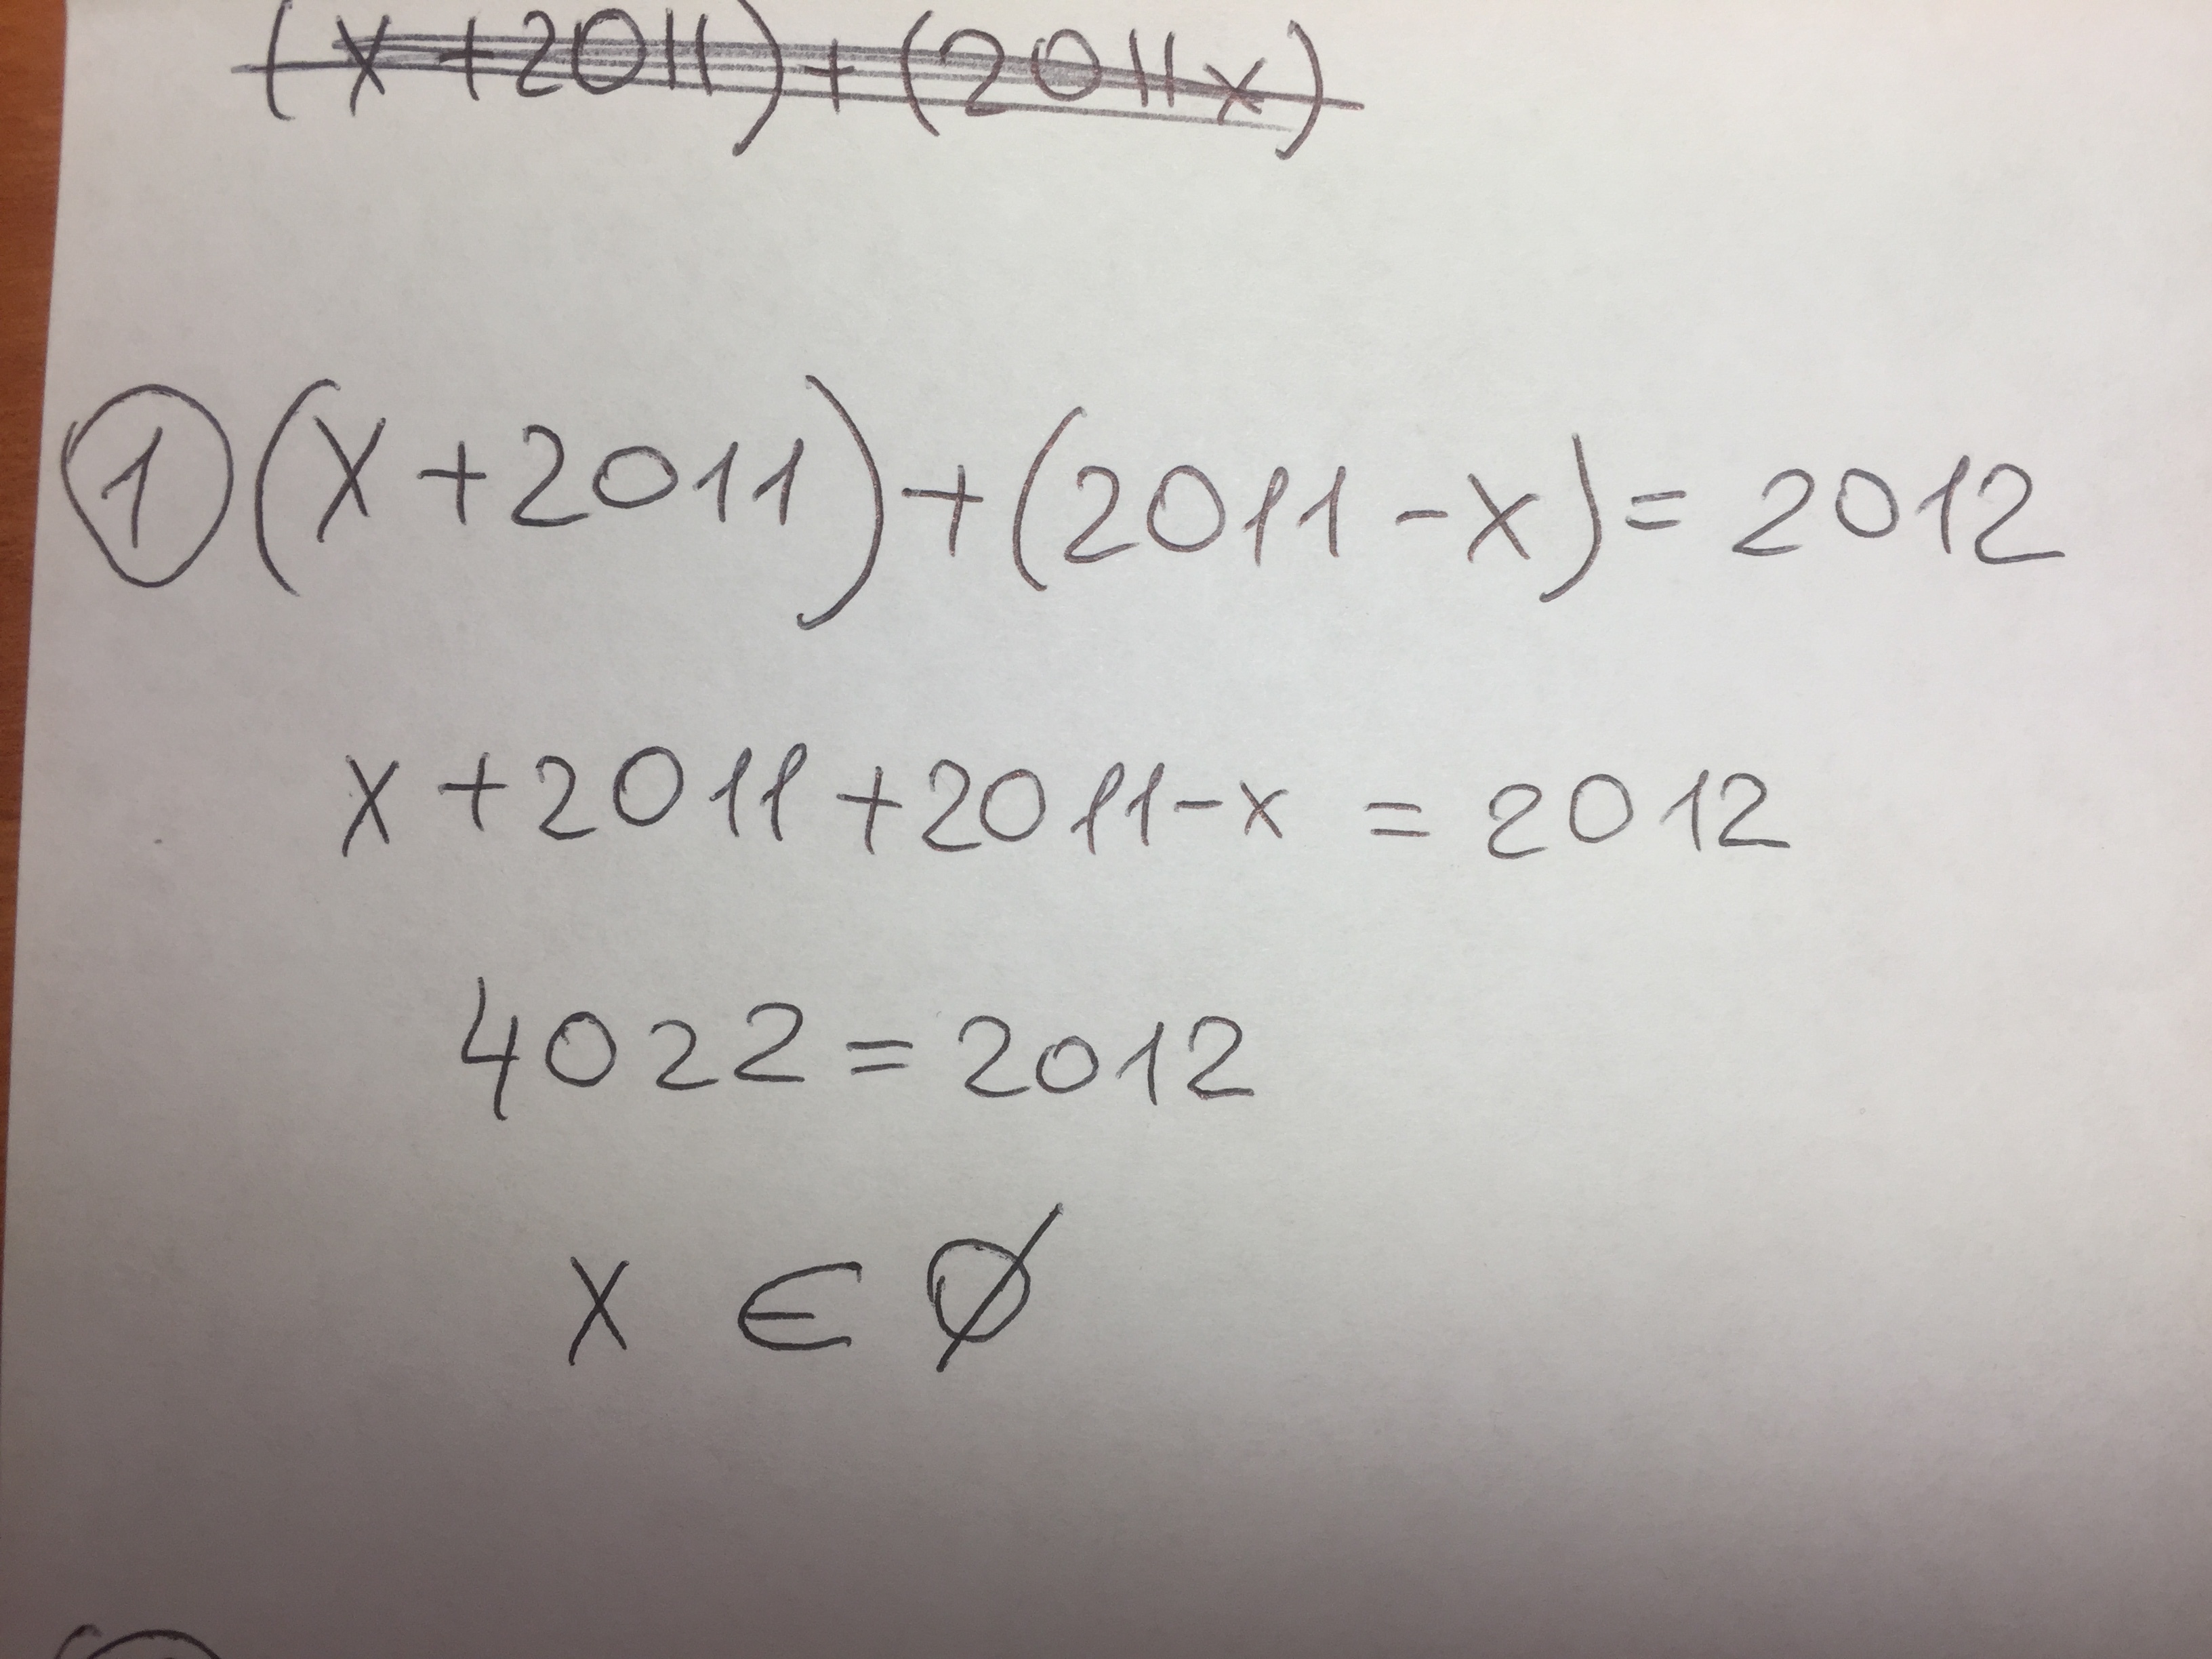 (x+2011)+(2011x)
① (x+2011)+(2011-x)=2012
x+2011+2011-x=2012
4022=2012
x∈∅